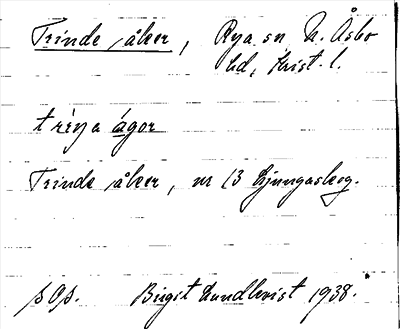 Trinde åker, Rya sn N. Åsbo
hd, Krist. l.
trìŋa ágor
Trinde åker, nr 13 Ljungaskog.
s Op. Birgit Lundkvist 1938.